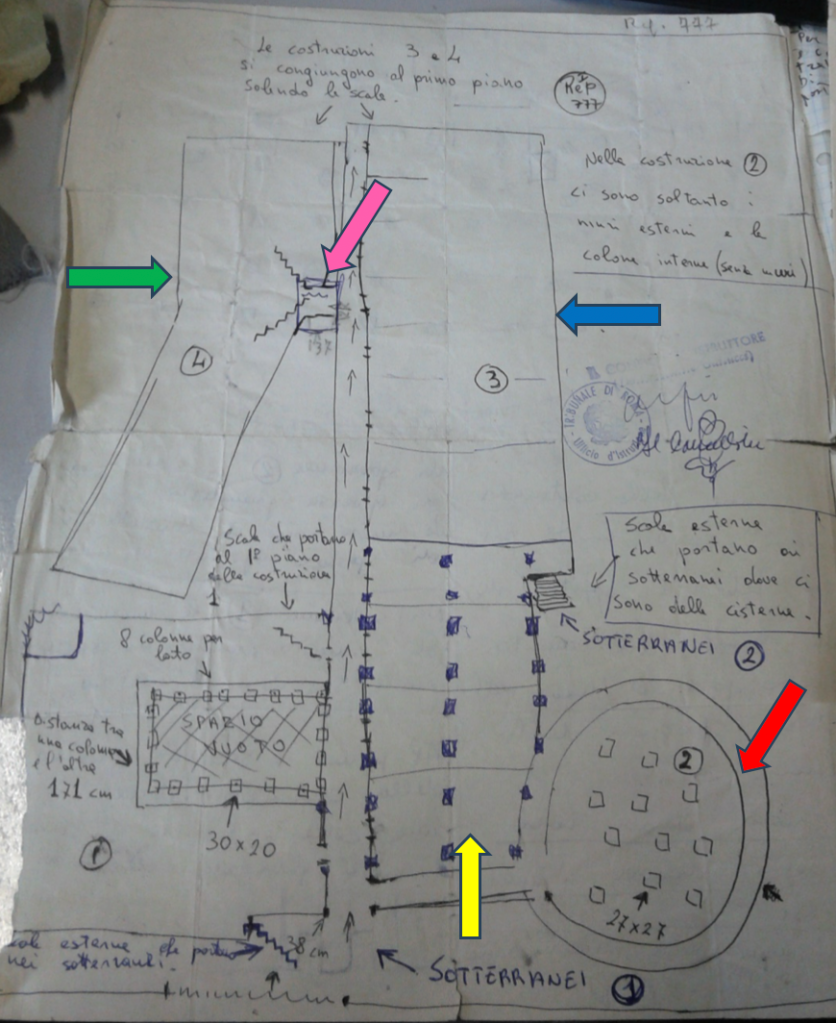 Rep. 777
Le costruzioni 3 e 4
si congiungono al primo piano
salendo le scale.
Rep
777
Nella costruzione 2
ci sono soltanto i
muri esterni e le
colone interne (senza muri)
137
4
3
TRIBUNALE DI ROMA
Scale che portano
al 1° piano
della costruzione
1
Scale esterne
che portano ai
sotterranei dove ci
sono delle cisterne.
SOTTERRANEI 2
8 colonne per
lato
SPAZIO
VUOTO
Distanza tra
una colonna
e l'altra
171 cm
2
30x20
1
27x27
scale esterne che portano
nei sotterranei.
38 cm
SOTTERRANEI 1